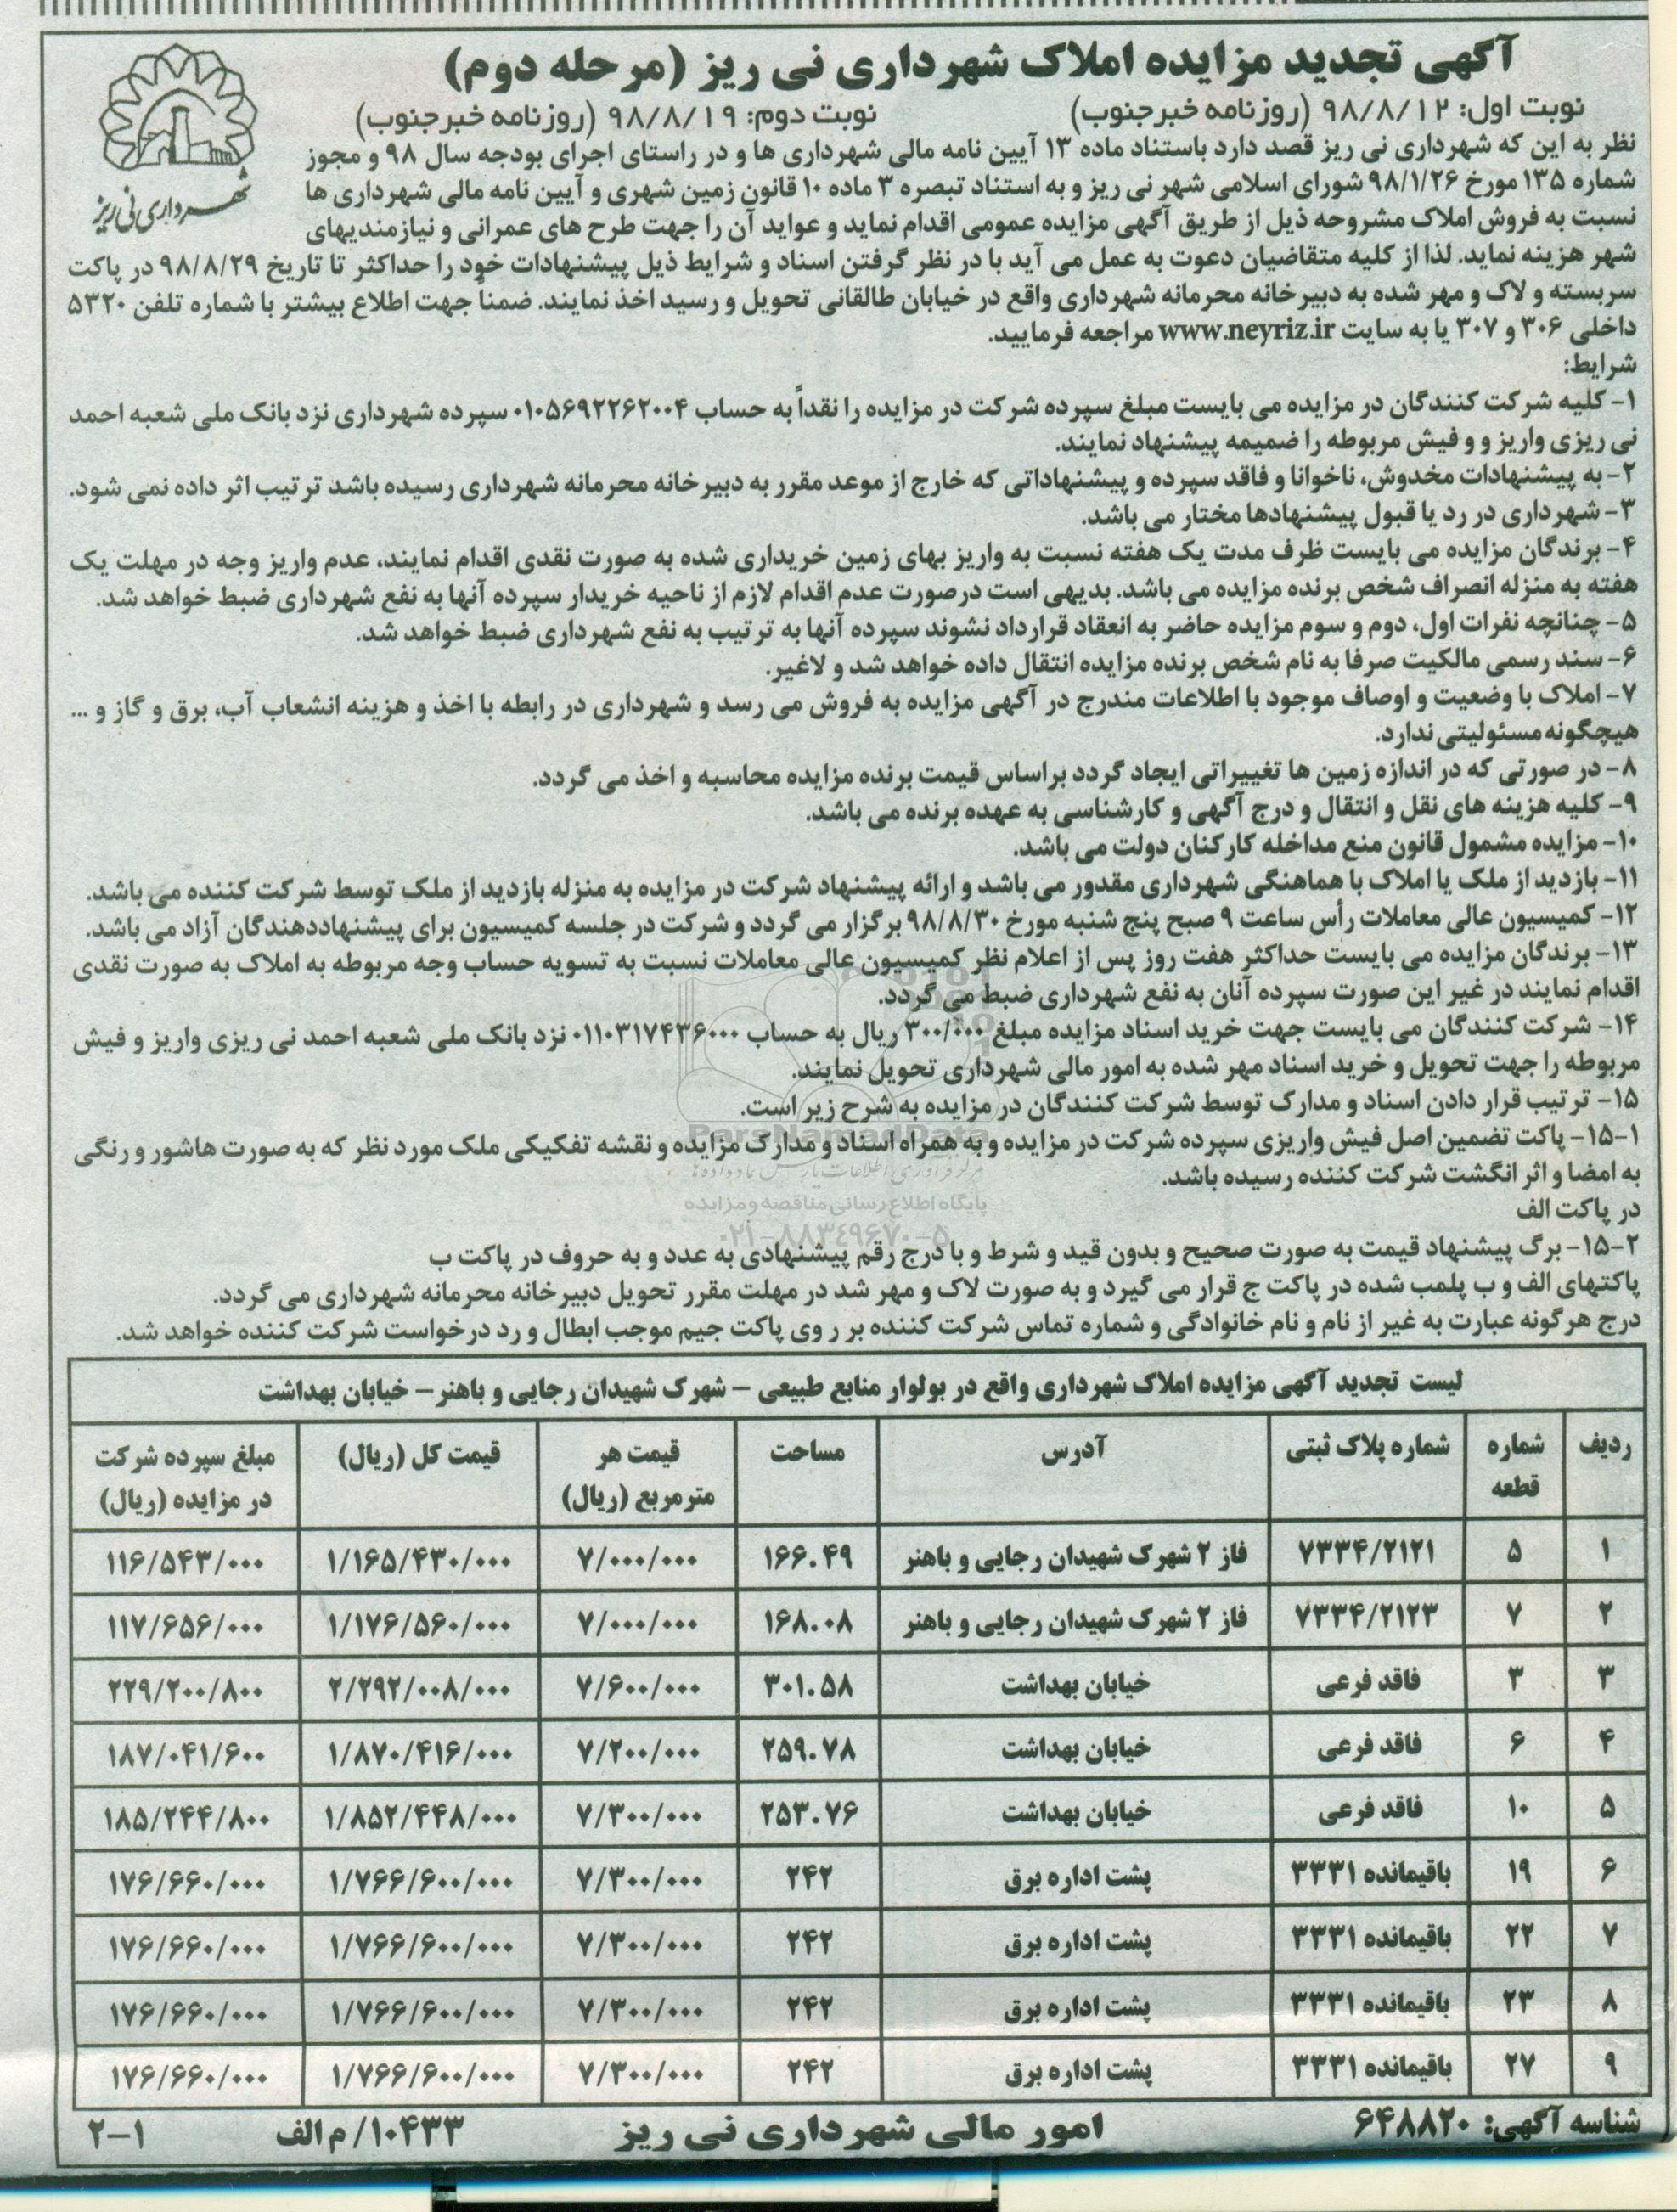 آگهی تجدید مزایده املاک شهرداری نی ریز (مرحله دوم)
نوبت اول: ۹۸/۸/۱۲ (روزنامه خبرجنوب) نوبت دوم: ۹۸/۸/۱۹ (روزنامه خبرجنوب)
شهرداری نی ریز
نظر به این که شهرداری نی ریز قصد دارد باستناد ماده ۱۳ آیین نامه مالی شهرداری ها و در راستای اجرای بودجه سال ۹۸ و مجوز
شماره ۱۳۵ مورخ ۹۸/۱/۲۶ شورای اسلامی شهر نی ریز و به استناد تبصره ۳ ماده ۱۰ قانون زمین شهری و آیین نامه مالی شهرداری ها
نسبت به فروش املاک مشروحه ذیل از طریق آگهی مزایده عمومی اقدام نماید و عواید آن را جهت طرح های عمرانی و نیازمندیهای
شهر هزینه نماید. لذا از کلیه متقاضیان دعوت به عمل می آید با در نظر گرفتن اسناد و شرایط ذیل پیشنهادات خود را حداکثر تا تاریخ ۹۸/۸/۲۹ در پاکت
سربسته و لاک و مهر شده به دبیرخانه محرمانه شهرداری واقع در خیابان طالقانی تحویل و رسید اخذ نمایند. ضمناً جهت اطلاع بیشتر با شماره تلفن ۵۳۲۰
داخلی ۳۰۶ و ۳۰۷ یا به سایت www.neyriz.ir مراجعه فرمایید.
شرایط:
۱- کلیه شرکت کنندگان در مزایده می بایست مبلغ سپرده شرکت در مزایده را نقداً به حساب ۰۱۰۵۶۹۲۲۶۲۰۰۴ سپرده شهرداری نزد بانک ملی شعبه احمد
نی ریزی واریز و و فیش مربوطه را ضمیمه پیشنهاد نمایند.
۲- به پیشنهادات مخدوش، ناخوانا و فاقد سپرده و پیشنهاداتی که خارج از موعد مقرر به دبیرخانه محرمانه شهرداری رسیده باشد ترتیب اثر داده نمی شود.
۳- شهرداری در رد یا قبول پیشنهادها مختار می باشد.
۴- برندگان مزایده می بایست ظرف مدت یک هفته نسبت به واریز بهای زمین خریداری شده به صورت نقدی اقدام نمایند، عدم واریز وجه در مهلت یک
هفته به منزله انصراف شخص برنده مزایده می باشد. بدیهی است درصورت عدم اقدام لازم از ناحیه خریدار سپرده آنها به نفع شهرداری ضبط خواهد شد.
۵- چنانچه نفرات اول، دوم و سوم مزایده حاضر به انعقاد قرارداد نشوند سپرده آنها به ترتیب به نفع شهرداری ضبط خواهد شد.
۶- سند رسمی مالکیت صرفا به نام شخص برنده مزایده انتقال داده خواهد شد و لاغیر.
۷- املاک با وضعیت و اوصاف موجود با اطلاعات مندرج در آگهی مزایده به فروش می رسد و شهرداری در رابطه با اخذ و هزینه انشعاب آب، برق و گاز و ...
هیچگونه مسئولیتی ندارد.
۸- در صورتی که در اندازه زمین ها تغییراتی ایجاد گردد براساس قیمت برنده مزایده محاسبه و اخذ می گردد.
۹- کلیه هزینه های نقل و انتقال و درج آگهی و کارشناسی به عهده برنده می باشد.
۱۰- مزایده مشمول قانون منع مداخله کارکنان دولت می باشد.
۱۱- بازدید از ملک یا املاک با هماهنگی شهرداری مقدور می باشد و ارائه پیشنهاد شرکت در مزایده به منزله بازدید از ملک توسط شرکت کننده می باشد.
۱۲- کمیسیون عالی معاملات رأس ساعت ۹ صبح پنج شنبه مورخ ۹۸/۸/۳۰ برگزار می گردد و شرکت در جلسه کمیسیون برای پیشنهاددهندگان آزاد می باشد.
۱۳- برندگان مزایده می بایست حداکثر هفت روز پس از اعلام نظر کمیسیون عالی معاملات نسبت به تسویه حساب وجه مربوطه به املاک به صورت نقدی
اقدام نمایند در غیر این صورت سپرده آنان به نفع شهرداری ضبط می گردد.
۱۴- شرکت کنندگان می بایست جهت خرید اسناد مزایده مبلغ ۳۰۰/۰۰۰ ریال به حساب ۰۱۱۰۳۱۷۴۳۶۰۰۰ نزد بانک ملی شعبه احمد نی ریزی واریز و فیش
مربوطه را جهت تحویل و خرید اسناد مهر شده به امور مالی شهرداری تحویل نمایند.
۱۵- ترتیب قرار دادن اسناد و مدارک توسط شرکت کنندگان در مزایده به شرح زیر است.
ParsNamadData
۱-۱۵- پاکت تضمین اصل فیش واریزی سپرده شرکت در مزایده و به همراه اسناد و مدارک مزایده و نقشه تفکیکی ملک مورد نظر که به صورت هاشور و رنگی
به امضا و اثر انگشت شرکت کننده رسیده باشد.
پایگاه اطلاع رسانی مناقصه و مزایده
در پاکت الف
۰۲۱-۸۸۳۴۹۶۷۰-۵
۲-۱۵- برگ پیشنهاد قیمت به صورت صحیح و بدون قید و شرط و با درج رقم پیشنهادی به عدد و به حروف در پاکت ب
پاکتهای الف و ب پلمب شده در پاکت ج قرار می گیرد و به صورت لاک و مهر شد در مهلت مقرر تحویل دبیرخانه محرمانه شهرداری می گردد.
درج هرگونه عبارت به غیر از نام و نام خانوادگی و شماره تماس شرکت کننده بر روی پاکت جیم موجب ابطال و رد درخواست شرکت کننده خواهد شد.
لیست تجدید آگهی مزایده املاک شهرداری واقع در بولوار منابع طبیعی – شهرک شهیدان رجایی و باهنر– خیابان بهداشت
ردیف شماره قطعه شماره پلاک ثبتی آدرس مساحت قیمت هر مترمربع (ریال) قیمت کل (ریال) مبلغ سپرده شرکت در مزایده (ریال)
۱ ۵ ۷۳۳۴/۲۱۲۱ فاز ۲ شهرک شهیدان رجایی و باهنر ۱۶۶.۴۹ ۷/۰۰۰/۰۰۰ ۱/۱۶۵/۴۳۰/۰۰۰ ۱۱۶/۵۴۳/۰۰۰
۲ ۷ ۷۳۳۴/۲۱۲۳ فاز ۲ شهرک شهیدان رجایی و باهنر ۱۶۸.۰۸ ۷/۰۰۰/۰۰۰ ۱/۱۷۶/۵۶۰/۰۰۰ ۱۱۷/۶۵۶/۰۰۰
۳ ۳ فاقد فرعی خیابان بهداشت ۳۰۱.۵۸ ۷/۶۰۰/۰۰۰ ۲/۲۹۲/۰۰۸/۰۰۰ ۲۲۹/۲۰۰/۸۰۰
۴ ۶ فاقد فرعی خیابان بهداشت ۲۵۹.۷۸ ۷/۲۰۰/۰۰۰ ۱/۸۷۰/۴۱۶/۰۰۰ ۱۸۷/۰۴۱/۶۰۰
۵ ۱۰ فاقد فرعی خیابان بهداشت ۲۵۳.۷۶ ۷/۳۰۰/۰۰۰ ۱/۸۵۲/۴۴۸/۰۰۰ ۱۸۵/۲۴۴/۸۰۰
۶ ۱۹ باقیمانده ۳۳۳۱ پشت اداره برق ۲۴۲ ۷/۳۰۰/۰۰۰ ۱/۷۶۶/۶۰۰/۰۰۰ ۱۷۶/۶۶۰/۰۰۰
۷ ۲۲ باقیمانده ۳۳۳۱ پشت اداره برق ۲۴۲ ۷/۳۰۰/۰۰۰ ۱/۷۶۶/۶۰۰/۰۰۰ ۱۷۶/۶۶۰/۰۰۰
۸ ۲۳ باقیمانده ۳۳۳۱ پشت اداره برق ۲۴۲ ۷/۳۰۰/۰۰۰ ۱/۷۶۶/۶۰۰/۰۰۰ ۱۷۶/۶۶۰/۰۰۰
۹ ۲۷ باقیمانده ۳۳۳۱ پشت اداره برق ۲۴۲ ۷/۳۰۰/۰۰۰ ۱/۷۶۶/۶۰۰/۰۰۰ ۱۷۶/۶۶۰/۰۰۰
شناسه آگهی: ۶۴۸۸۲۰ امور مالی شهرداری نی ریز ۱۰۴۳۳/ م الف ۲-۱